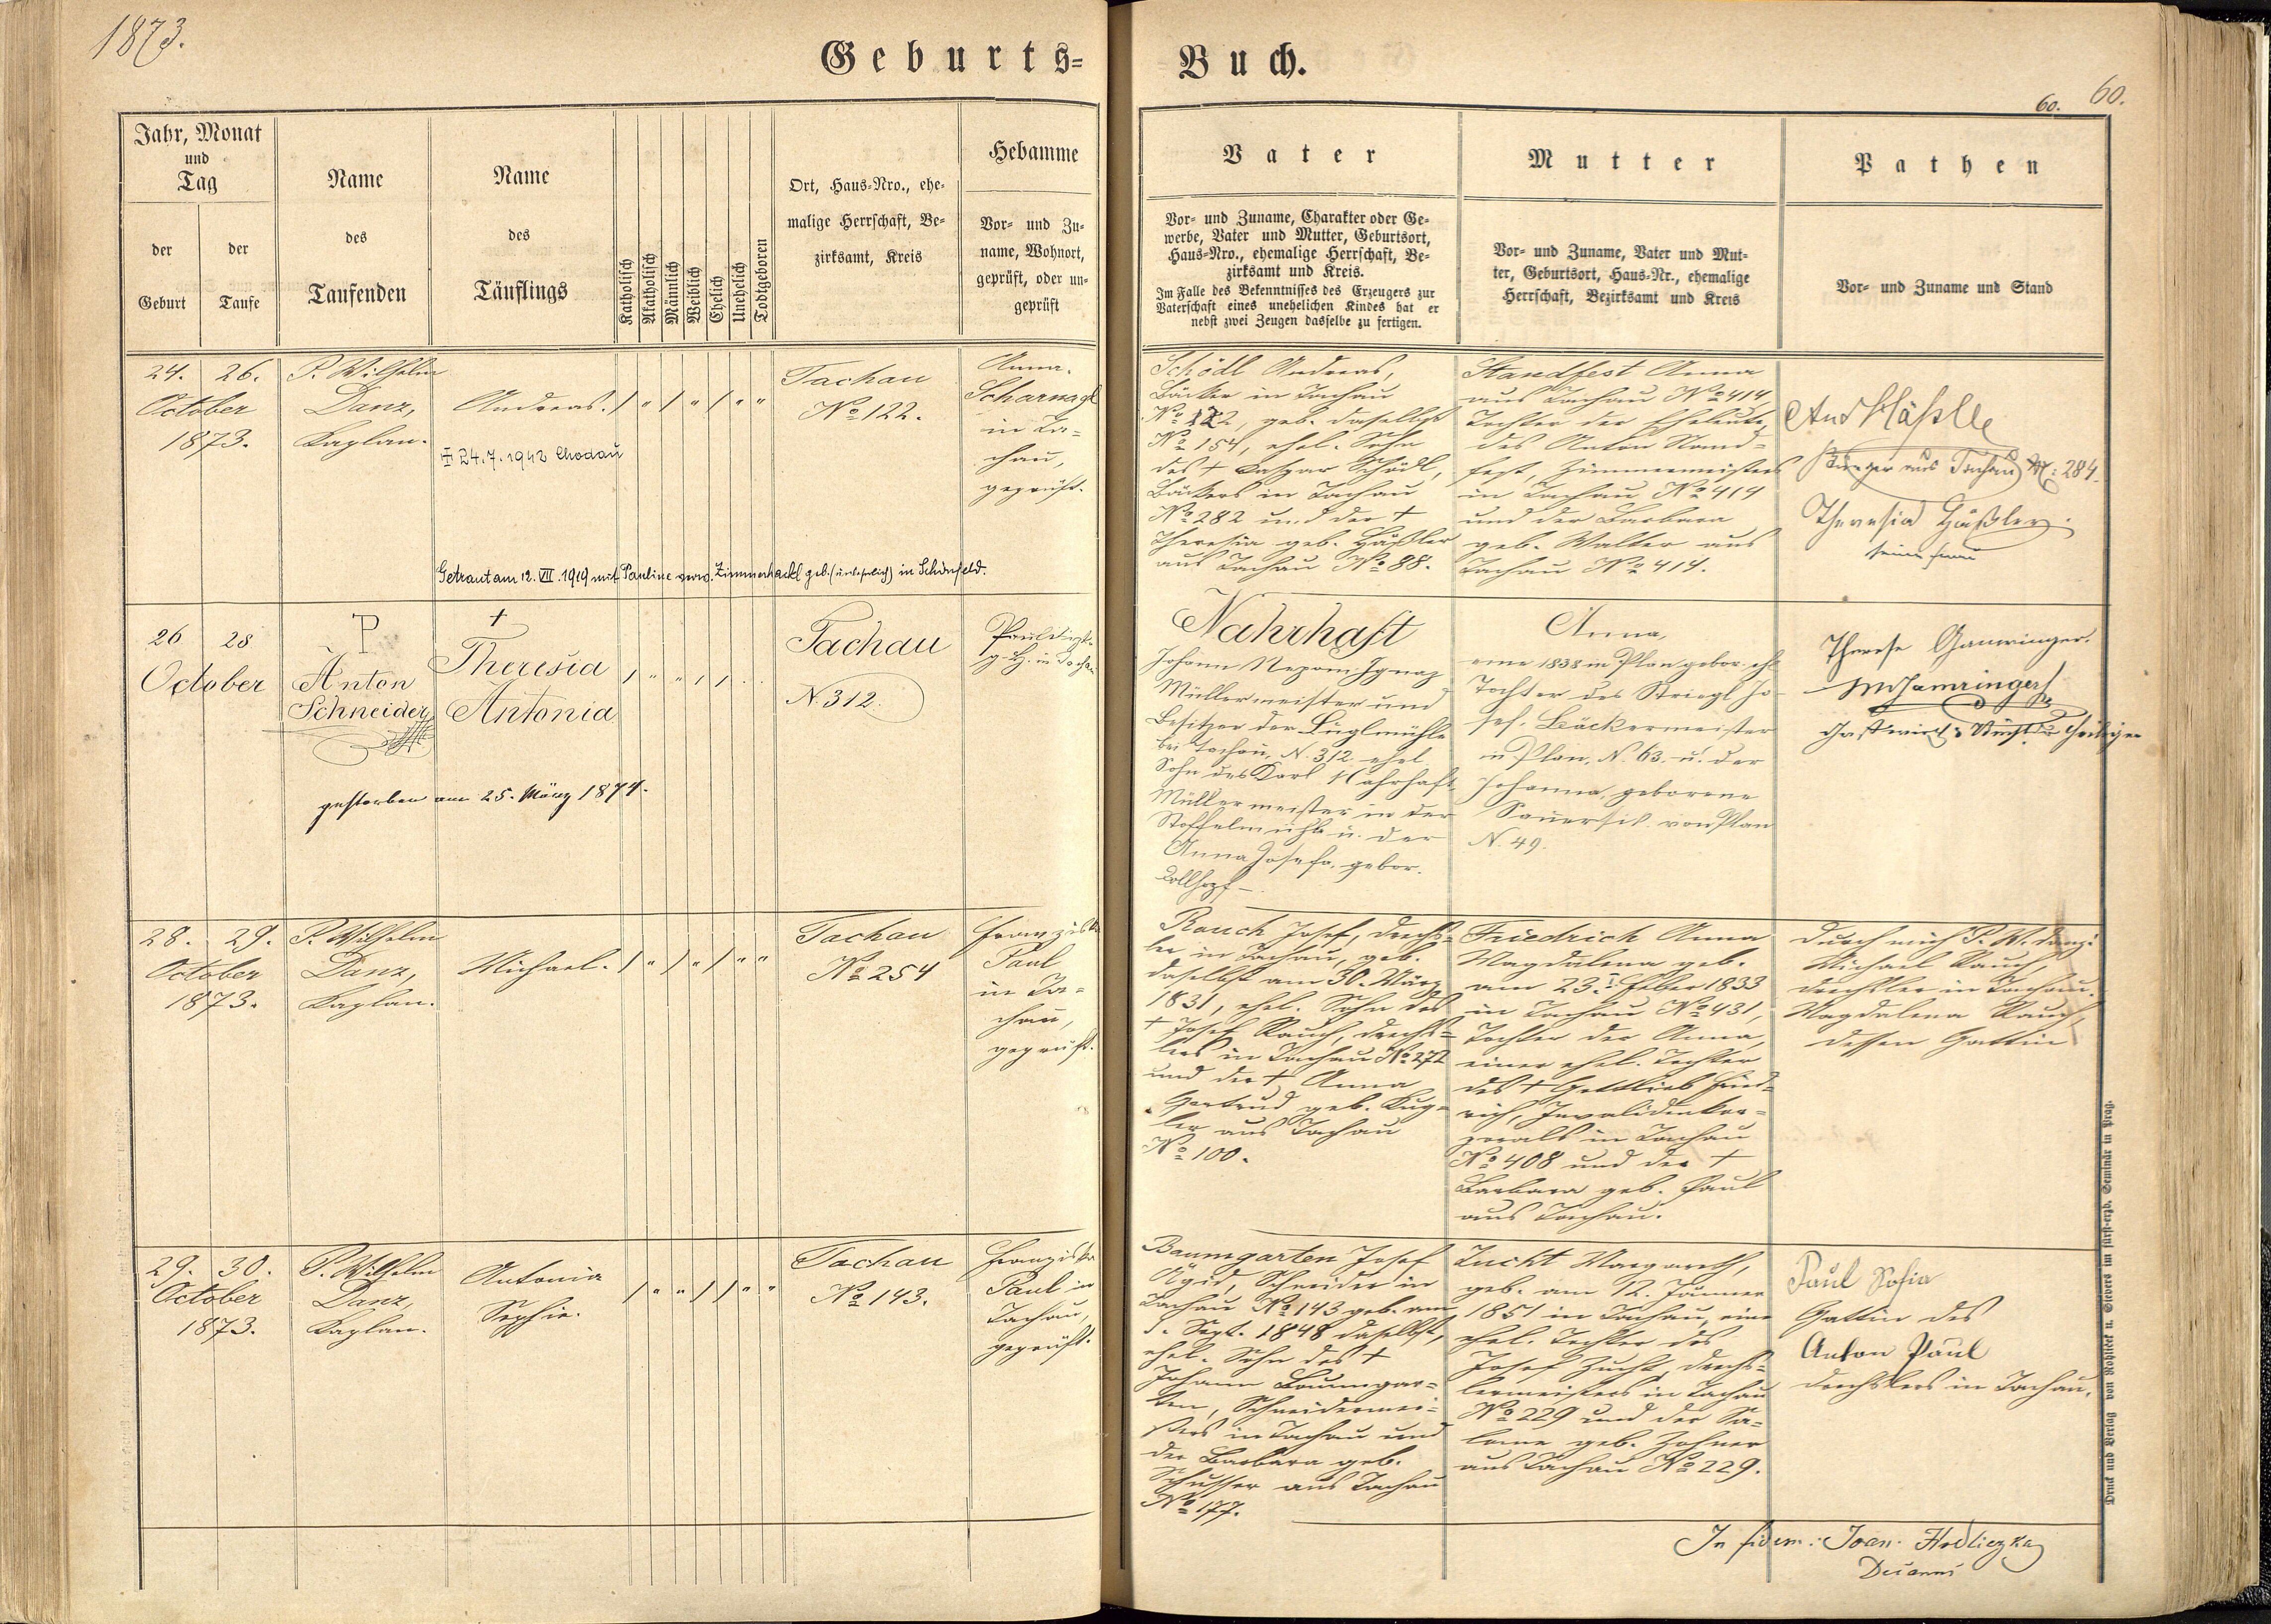 1873.
Geburts=
Buch.
60. 60.
Jahr, Monat
und
Tag
der
Geburt
der
Taufe
Name
des
Taufenden
Name
des
Täuflings
Katholisch
Akatholisch
Männlich
Weiblich
Ehelich
Unehelich
Todtgeboren
Ort, Haus=Nro., ehe=
malige Herrschaft, Be=
zirksamt, Kreis
Hebamme
Vor= und Zu=
name, Wohnort,
geprüft, oder un=
geprüft
Vater
Vor= und Zuname, Charakter oder Ge=
werbe, Vater und Mutter, Geburtsort,
Haus=Nro., ehemalige Herrschaft, Be=
zirksamt und Kreis.
Im Falle des Bekenntnisses des Erzeugers zur
Vaterschaft eines unehelichen Kindes hat er
nebst zwei Zeugen dasselbe zu fertigen.
Mutter
Vor= und Zuname, Vater und Mut=
ter, Geburtsort, Haus=Nr., ehemalige
Herrschaft, Bezirksamt und Kreis
Pathen
Vor= und Zuname und Stand
24. 26.
October
1873.
P. Wilhelm
Danz,
Kaplan.
Andreas. / " / " / " "
+ 24.7.1942 Chodau
Getraut am 12. VII. 1919 mit Pauline verw. Zimmerhackl geb. in Schönfeld.
Tachau
No 122.
Anna
Scharnagl
in Ta=
chau,
geprüft.
Schödl Andreas,
Bäcker in Tachau
No 122, geb. daselbst
No 154, ehel. Sohn
des + Caspar Schödl,
Bäckers in Tachau
No 282 und der +
Theresia geb. Häßler
aus Tachau No 88.
Standfest Anna
aus Tachau No 414,
Tochter der Eheleute
des Anton Stand=
fest, Zimmermeisters
in Tachau No 414
und der Barbara
geb. Walter aus
Tachau No 414.
Bürger aus Tachau No: 284.
Theresia Häßler
seine Frau
26 28
October
P
Anton
Schneider
+
Theresia
Antonia
gestorben am 25. März 1874.
Tachau
N. 312.
in Tachau
Nahrhaft
Johann Nepom. Ignaz
Müllermeister und
Besitzer der Luglmühle
bei Tachau, N. 312 ehel.
Sohn des Karl Nahrhaft,
Müllermeister in der
Stoffelmühle u. der
Anna Josefa, gebor.
Zollhopf —
Anna,
eine 1838 in Plan gebor. ehl.
Tochter des Striegl Jo=
sef, Bäckermeister
in Plan, N. 63. u. der
Johanna, geborene
von Plan
N. 49.
Therese Gamringer.
28. 29.
October
1873.
P. Wilhelm
Danz,
Kaplan.
Michael. / " / " / " "
Tachau
No 254
Franziska
Paul
in Ta=
chau,
geprüft.
Rauch Josef, Drechs=
ler in Tachau, geb.
daselbst am 30. März
1831, ehel. Sohn des
+ Josef Rauch, Drechs=
lers in Tachau No 272
und der + Anna
Gertrud geb. Kug=
ler aus Tachau
No 100.
Friedrich Anna
Magdalena geb.
am 23. Feber 1833
in Tachau No 431,
Tochter der Anna,
einer ehel. Tochter
des + Gottlieb Fried=
rich, Invalidenkor=
porals in Tachau
No 408 und der +
Barbara geb. Paul
aus Tachau.
Durch mich P. W. Danz:
Michael Rauch,
Drechsler in Tachau.
Magdalena Rauch,
dessen Gattin
29. 30.
October
1873.
P. Wilhelm
Danz,
Kaplan.
Antonia
Sophie.
/ " " / / " "
Tachau
No 143.
Franziska
Paul in
Tachau,
geprüft.
Baumgarten Josef
Ägid, Schneider in
Tachau No 143 geb. am
Sept. 1848 daselbst,
ehel. Sohn des +
Johann Baumgar=
ten, Schneidermei=
sters in Tachau und
der Barbara geb.
Schusser aus Tachau
No 177.
Zucht Margareth,
geb. am 12. Jänner
1851 in Tachau, eine
ehel. Tochter des
Josef Zucht, Drechs=
lermeisters in Tachau
No 229 und der Sa=
lome geb. Zohner
aus Tachau No 229.
Paul Sofia
Gattin des
Anton Paul
Drechslers in Tachau.
In fidem: Joan. Hodliczka
Decanus
Druck und Verlag von Rohliček u. Sievers im fürst-erzb. Seminär in Prag.